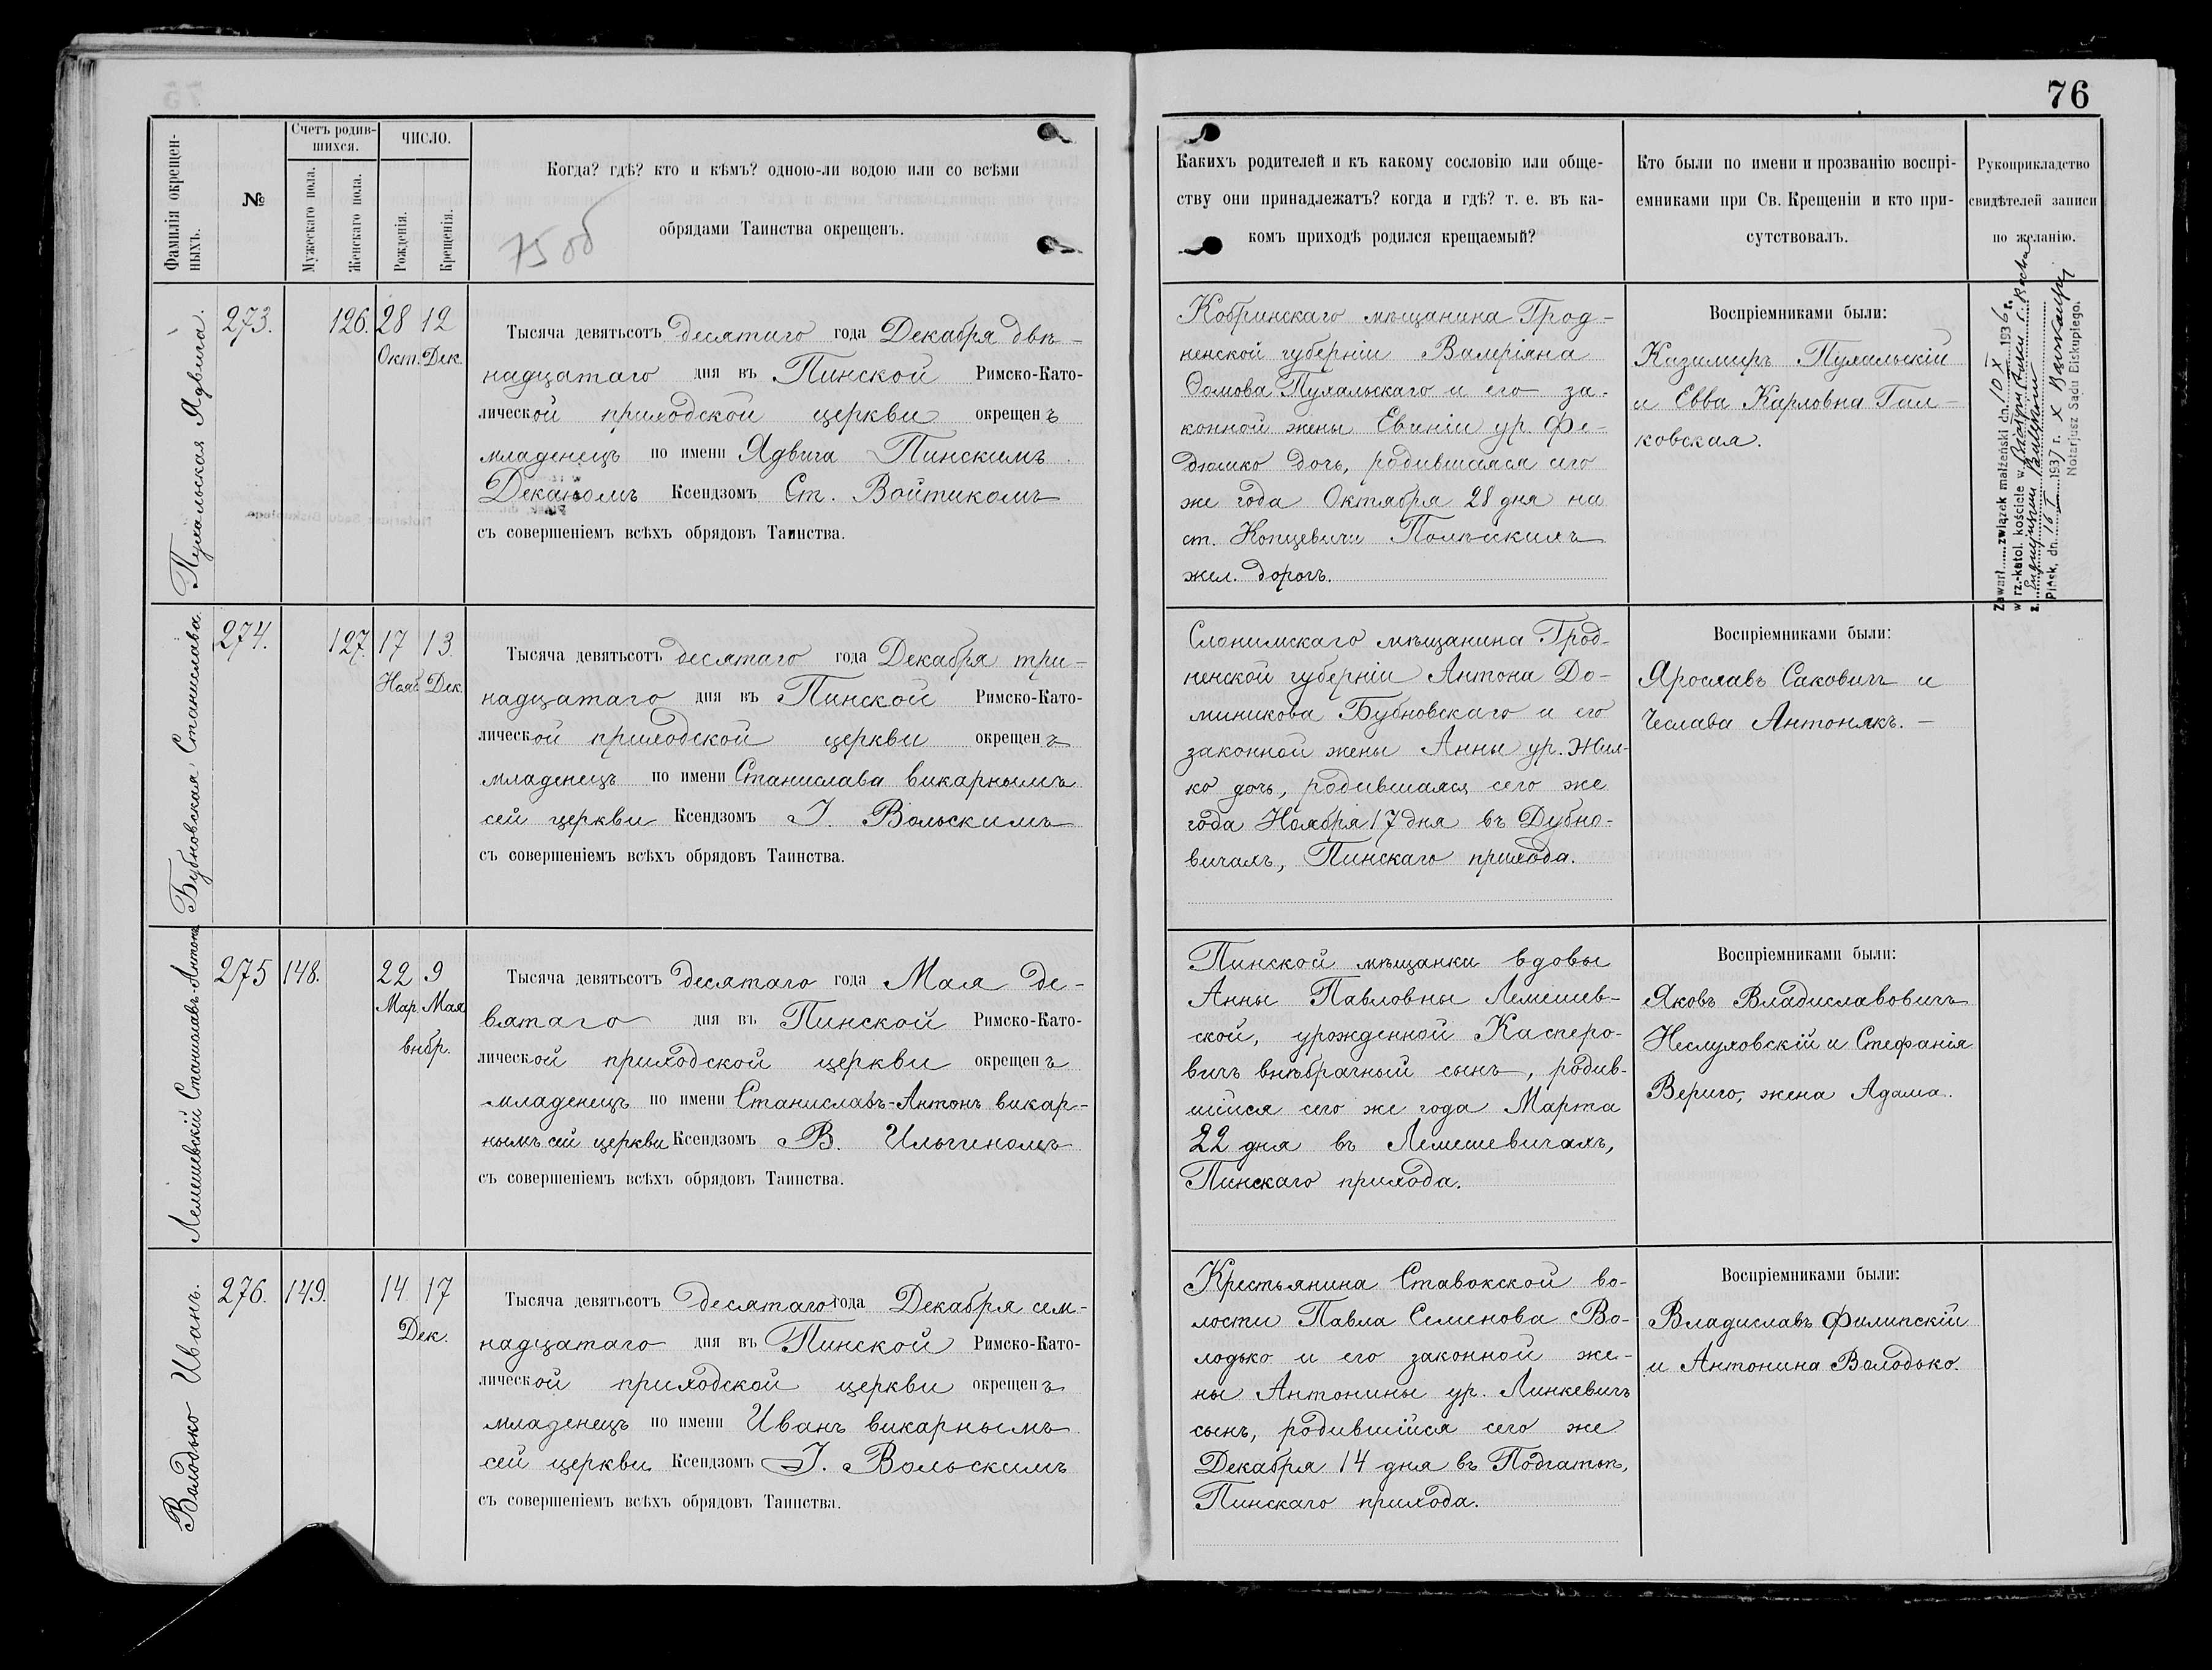 76
Фамилія окрещен-
ныхъ.
№
Счетъ родив-
шихся.
Мужескаго пола.
Женскаго пола.
ЧИСЛО.
Рожденія.
Крещенія.
Когда? гдѣ? кто и кѣмъ? одною-ли водою или со всѣми
обрядами Таинства окрещенъ.
75 об
Какихъ родителей и къ какому сословію или обще-
ству они принадлежатъ? когда и гдѣ? т. е. въ ка-
комъ приходѣ родился крещаемый?
Кто были по имени и прозванію воспрі-
емниками при Св. Крещеніи и кто при-
сутствовалъ.
Рукоприкладство
свидѣтелей записи
по желанію.
Пухальская Ядвига.
273.
126.
28 12
Окт. Дек.
Тысяча девятьсотъ десятаго года Декабря двѣ-
надцатаго дня въ Пинской Римско-Като-
лической приходской церкви окрещенъ
младенецъ по имени Ядвига Пинскимъ
Деканомъ Ксендзомъ Ст. Войтикомъ
съ совершеніемъ всѣхъ обрядовъ Таинства.
Кобринскаго мѣщанина Грод-
ненской губерніи Валеріяна
Ѳомова Пухальскаго и его за-
конной жены Евгеніи ур. Фе-
дюшко дочь, родившаяся сего
же года Октября 28 дня на
ст. Копцевичи Полѣскихъ
жел. дорогъ.
Воспріемниками были:
Казимиръ Пухальскій
и Евва Карловна Гал-
ковская.
Zawarł związek małżeński dn. 10 X 1936 r.
w rz.-katol. kościele w
z
Pińsk, dn. 16 I 1937 r. X
Notarjusz Sądu Biskupiego.
Бубновская Станислава
274.
127.
17 13
Нояб Дек.
Тысяча девятьсотъ десятаго года Декабря три-
надцатаго дня въ Пинской Римско-Като-
лической приходской церкви окрещенъ
младенецъ по имени Станислава викарнымъ
сей церкви Ксендзомъ І. Вольскимъ
съ совершеніемъ всѣхъ обрядовъ Таинства.
Слонимскаго мѣщанина Грод-
ненской губерніи Антона До-
миникова Бубновскаго и его
законной жены Анны ур. Жил-
ко дочь, родившаяся сего же
года Ноября 17 дня въ Дубно-
вичахъ, Пинскаго прихода.
Воспріемниками были:
Ярославъ Саковичъ и
Чеслава Антонякъ. –
Лемешевскій Станиславъ-Антонъ
275
148.
22 9
Мар. Мая
внбр.
Тысяча девятьсотъ десятаго года Мая де-
вятаго дня въ Пинской Римско-Като-
лической приходской церкви окрещенъ
младенецъ по имени Станиславъ-Антонъ викар-
нымъ сей церкви Ксендзомъ В. Ильгиномъ
съ совершеніемъ всѣхъ обрядовъ Таинства.
Пинской мѣщанки вдовы
Анны Павловны Лемешев-
ской, урожденной Касперо-
вичъ внѣбрачный сынъ, родив-
шійся сего же года Марта
22 дня въ Лемешевичахъ,
Пинскаго прихода.
Воспріемниками были:
Яковъ Владиславовичъ
Неслуховскій и Стефанія
Вериго, жена Адама.
Володько Иванъ.
276.
149.
14 17
Дек.
Тысяча девятьсотъ десятаго года Декабря сем-
надцатаго дня въ Пинской Римско-Като-
лической приходской церкви окрещенъ
младенецъ по имени Иванъ викарнымъ
сей церкви Ксендзомъ І. Вольскимъ
съ совершеніемъ всѣхъ обрядовъ Таинства.
Крестьянина Ставокской во-
лости Павла Семенова Во-
лодько и его законной же-
ны Антонины ур. Линкевичъ
сынъ, родившійся сего же
Декабря 14 дня въ Подгатьѣ,
Пинскаго прихода.
Воспріемниками были:
Владиславъ Филипскій
и Антонина Володько.